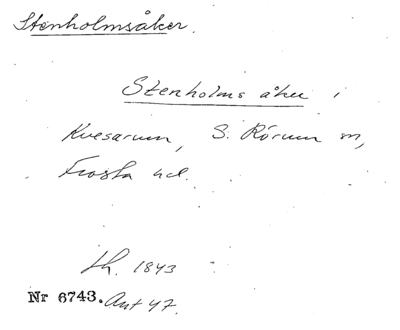 Stenholmsåker.
Stenholms åker i
Kvesarum, S. Rörum sn,
Frosta hd.
lh. 1843
Nr 6743. Ant 47.